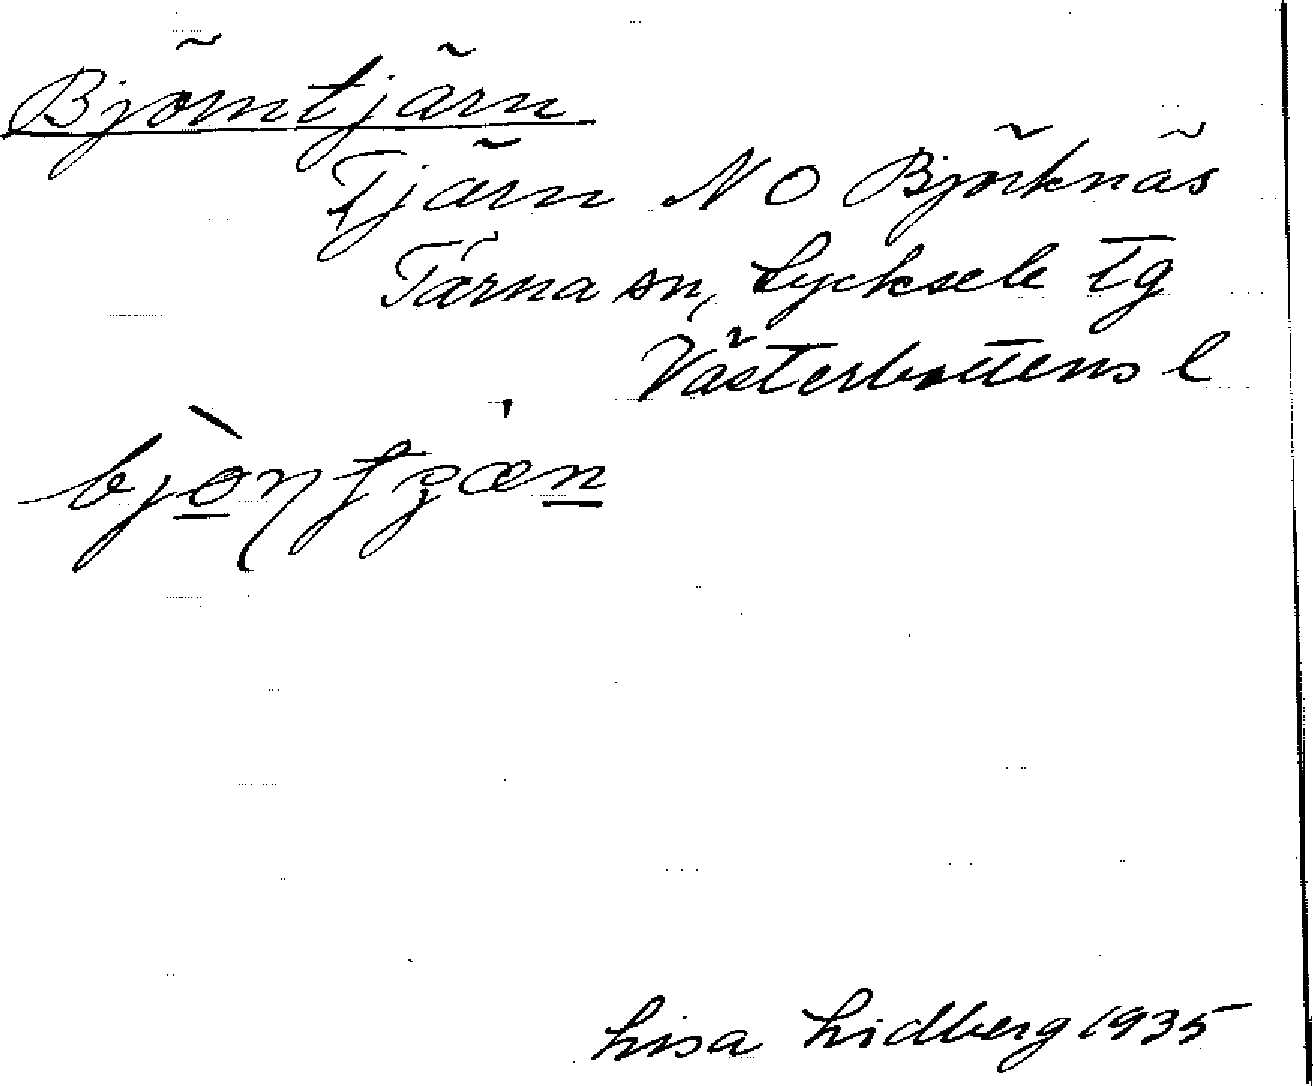 Björntjärn
Tjärn NO Björknäs
Tärna sn, Lycksele tg
Västerbottens l
Lisa Lidberg 1935